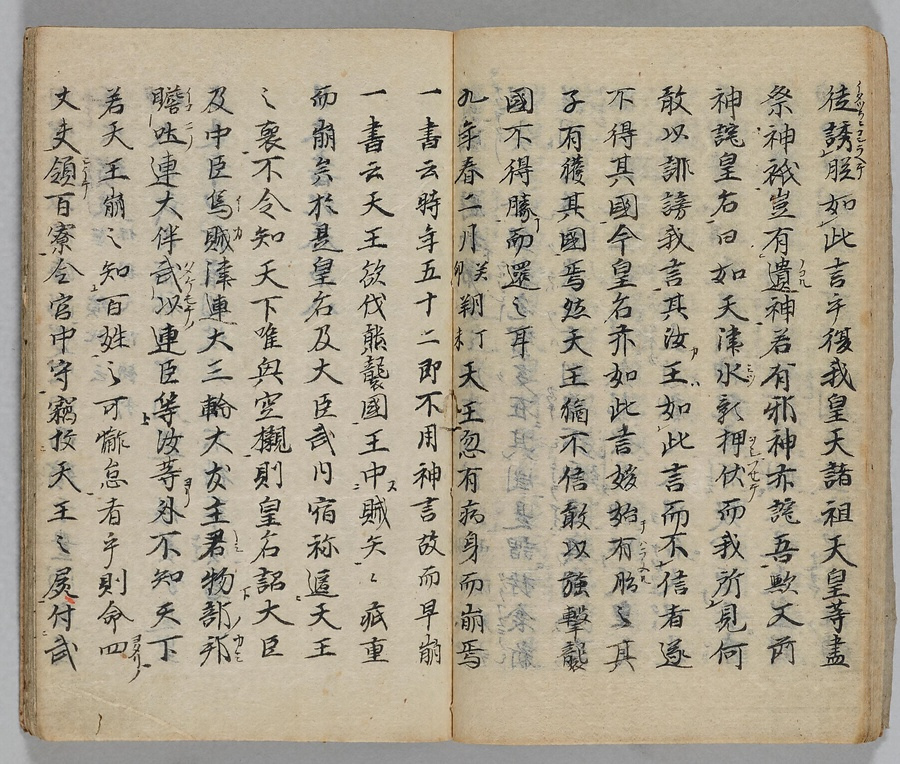 徒誘脱如此言乎復我皇天諸祖天皇等盡
祭神祇豈有遺神若有邪神亦詫吾歟又
神詫皇后曰如天津水影押伏而我所見何
敢以誹謗我言其汝王如此言而不信者遂
不得其國今皇后亦如此言始有胎其
子有獲其國焉然天王猶不信敢以強擊襲
國不得勝而還之耳
九年春二月癸卯朔丁未天王忽有病身而崩焉
一書云時年五十二即不用神言故而早崩
一書云天王欲伐熊襲國王中賊矢〻疵重
而崩矣於是皇后及大臣武内宿祢匿天王
之喪不令知天下唯與空櫬則皇后詔大臣
及中臣烏賊津連大三輪大友主君物部
膽咋連大伴武以連臣等汝等外不知天下
若天王崩之知百姓之可懈怠者乎則命四
丈夫領百寮令宮中守竊投天王之屍付武